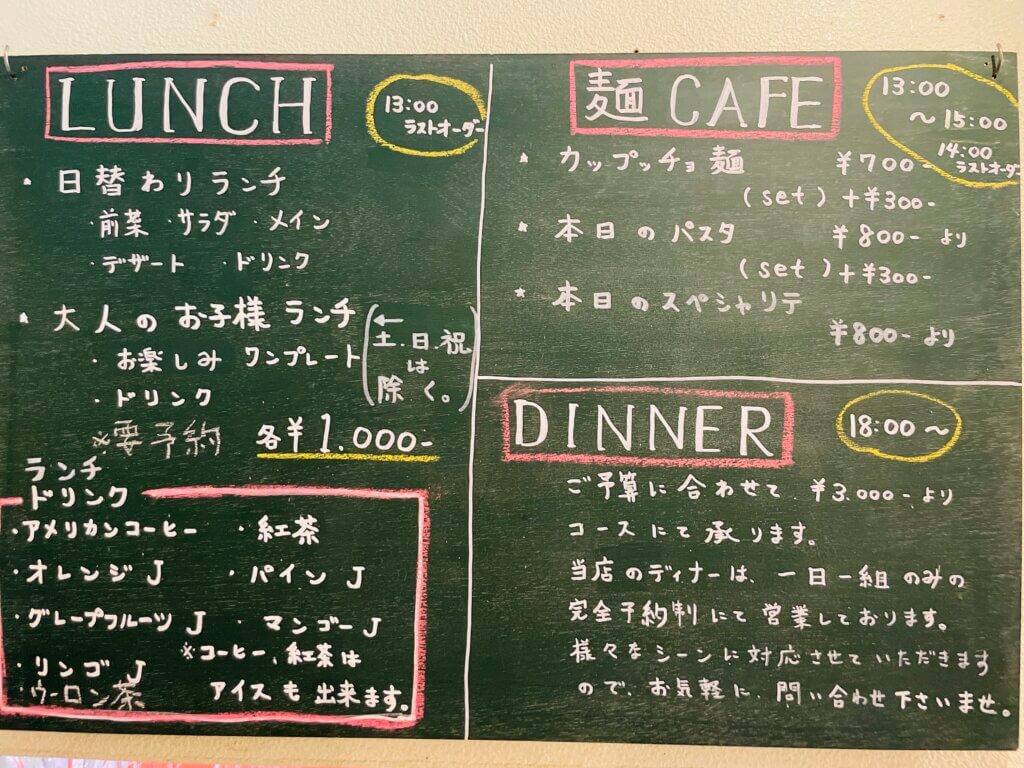 LUNCH
13:00
ラストオーダー
・日替わりランチ
・前菜 ・サラダ ・メイン
・デザート ・ドリンク
・大人のお子様ランチ
(←
土.日.祝
は
除く。)
・お楽しみ ワンプレート
・ドリンク
※要予約
各¥1.000-
ランチ
ドリンク
・アメリカンコーヒー ・紅茶
・オレンジJ ・パインJ
・グレープフルーツJ ・マンゴーJ
・リンゴJ
・ウーロン茶
※コーヒー、紅茶は
アイスも出来ます。
麺 CAFE
13:00
～15:00
14:00
ラストオーダー
★ カップッチョ麺 ¥700-
(set)+¥300-
★ 本日のパスタ ¥800-より
(set)+¥300-
★ 本日のスペシャリテ
¥800-より
DINNER
18:00～
ご予算に合わせて ¥3.000-より
コースにて承ります。
当店のディナーは、一日一組のみの
完全予約制にて営業しております。
様々なシーンに対応させていただきます
ので、お気軽に、問い合わせ下さいませ。